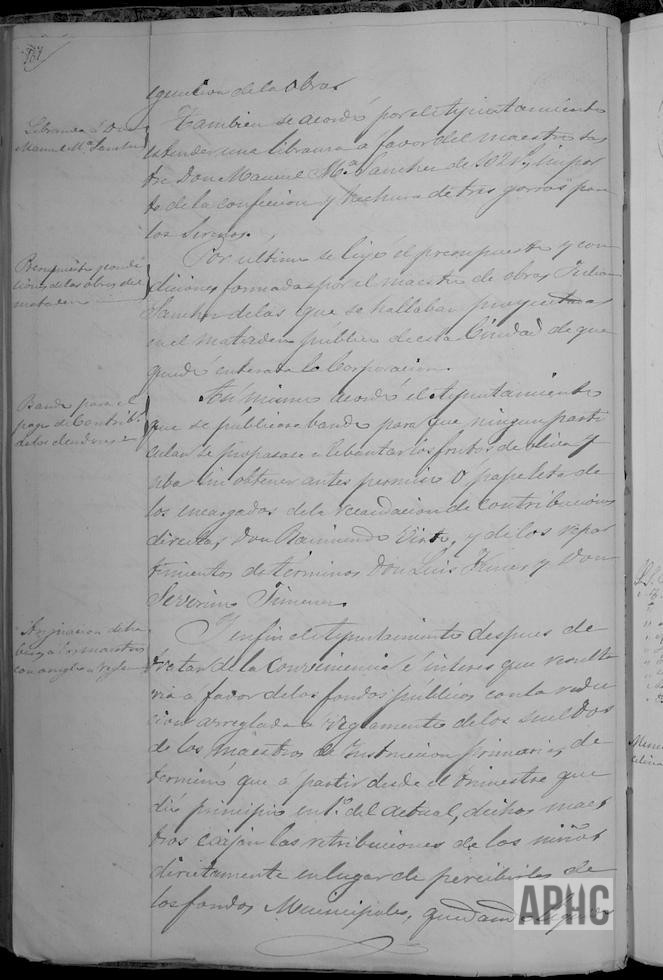 151
egucion de la obra.
Libranza à Don
Manuel Mª Sanchez
Tambien se acordó por el Ayuntamiento
estender una libranza á favor del maestro sas
tre Don Manuel Mª Sanchez de impor
te de la confeccion y hechura de tres gorros para
los Serenos.
Presupuesto y condi
ciones de las obras del
matadero
Por ultimo se leyó el presupuesto y con
diciones formadas por el maestro de obras Julian
Sanchez de las que se hallaban proyectadas
en el matadero público de esta Ciudad de que
quedó enterada la Corporacion.
Bando para el
pago de Contrib.
Asi mismo acordó el Ayuntamiento
que se publicara bando para que ningun parti
cular se propasase a lebantar los frutos de oliva y
uba sin obtener antes permiso o papeleta de
los encargados de la recaudacion de contribuciones
directas, Don Raimundo y de los repar
timientos de terminos Don Luis y Don
Severino Timener.
Asignacion
á los maestros
con arreglo a reglam
Y en fin el Ayuntamiento despues de
tratar de la conveniencia é interes que resulta
ria a favor de los fondos publicos con la reduc
cion arreglada a reglamento de los sueldos
de los maestros de Instruccion primaria, de
termino que a partir desde el trimestre que
dio principio en 1º del actual, dichos maes
tros cojan las retribuciones de los niños
directamente en lugar de percibirlas de
los fondos Municipales, quedando
APHC